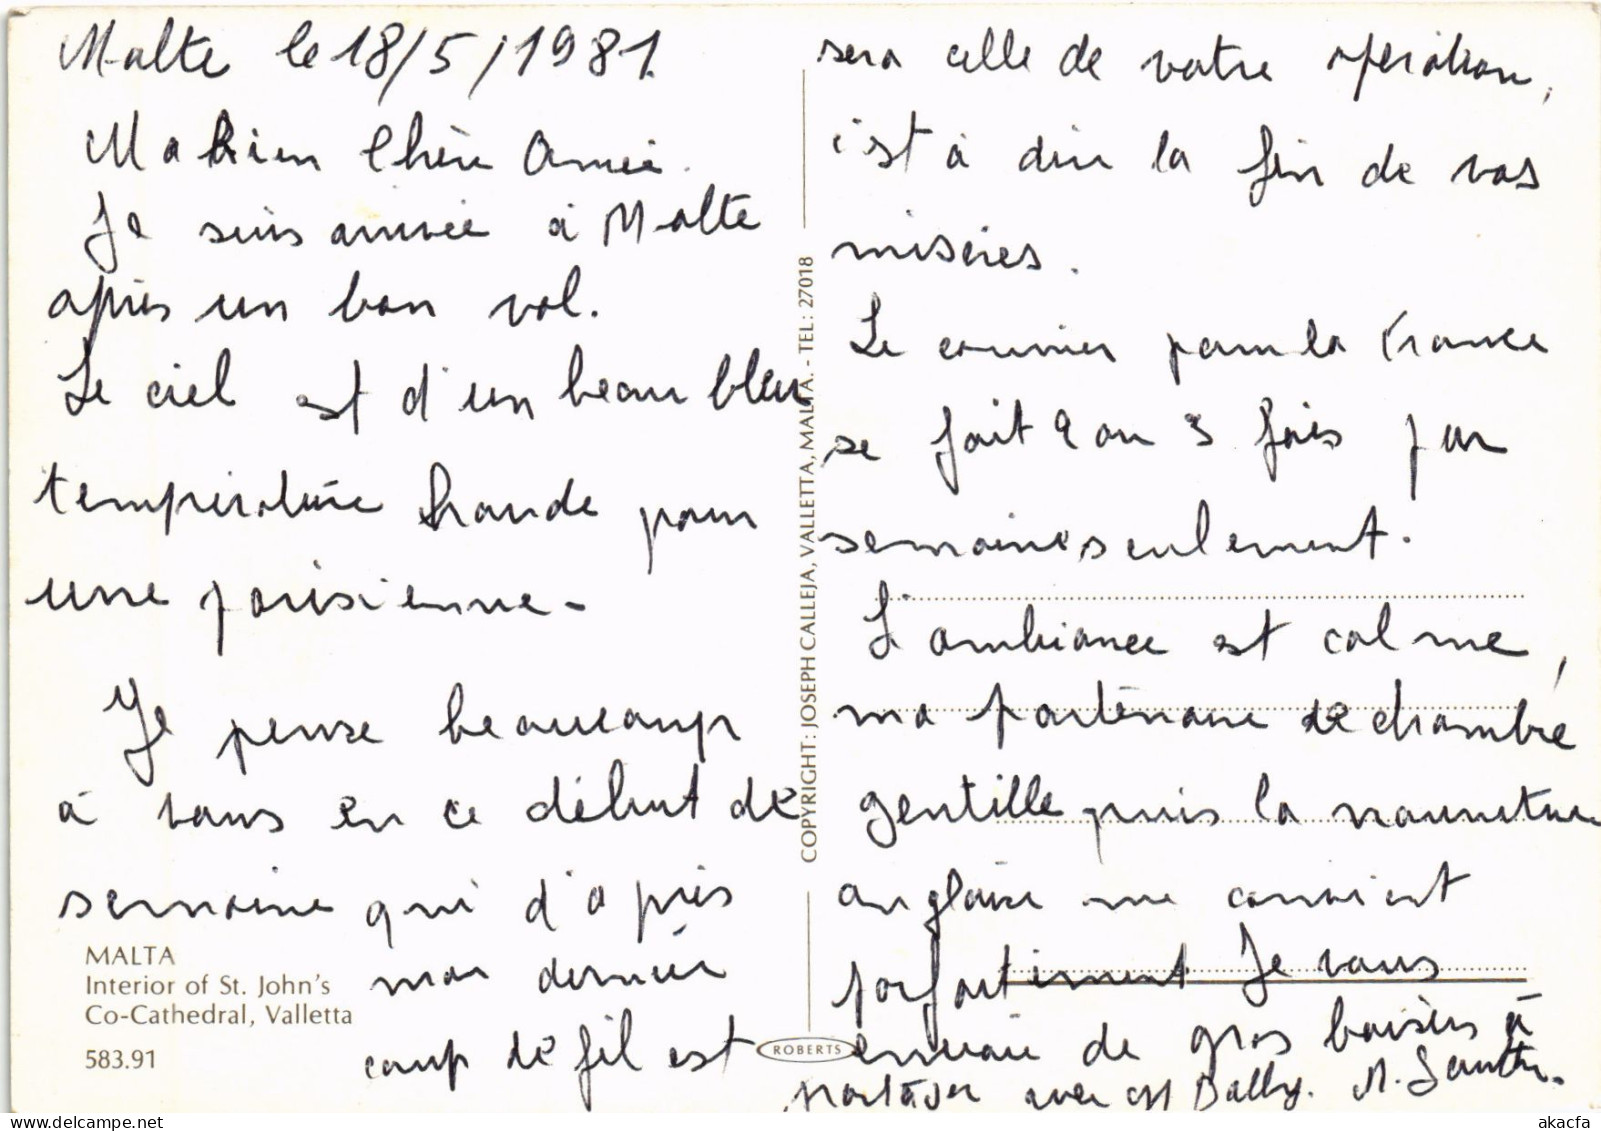 Malte le 18/5/1981.
Ma bien Chère Amie.
Je suis arrivée à Malte
après un bon vol.
Le ciel est d'un beau bleu
température chaude pour
une parisienne -
Je pense beaucoup
à vous en ce début de
semaine qui d'après
mon dernier
coup de fil est
MALTA
Interior of St. John's
Co-Cathedral, Valletta
583.91
COPYRIGHT: JOSEPH CALLEJA, VALLETTA, MALTA. - TEL: 27018
ROBERTS
sera celle de votre opération,
c'est à dire la fin de vos
misères.
Le courrier pour la France
se fait 2 ou 3 fois par
semaine seulement.
L'ambiance est calme,
ma partenaire de chambre
gentille puis la nourriture
anglaise me convient
parfaitement Je vous
envoie de gros baisers à
partager avec M Bally.
akacfa